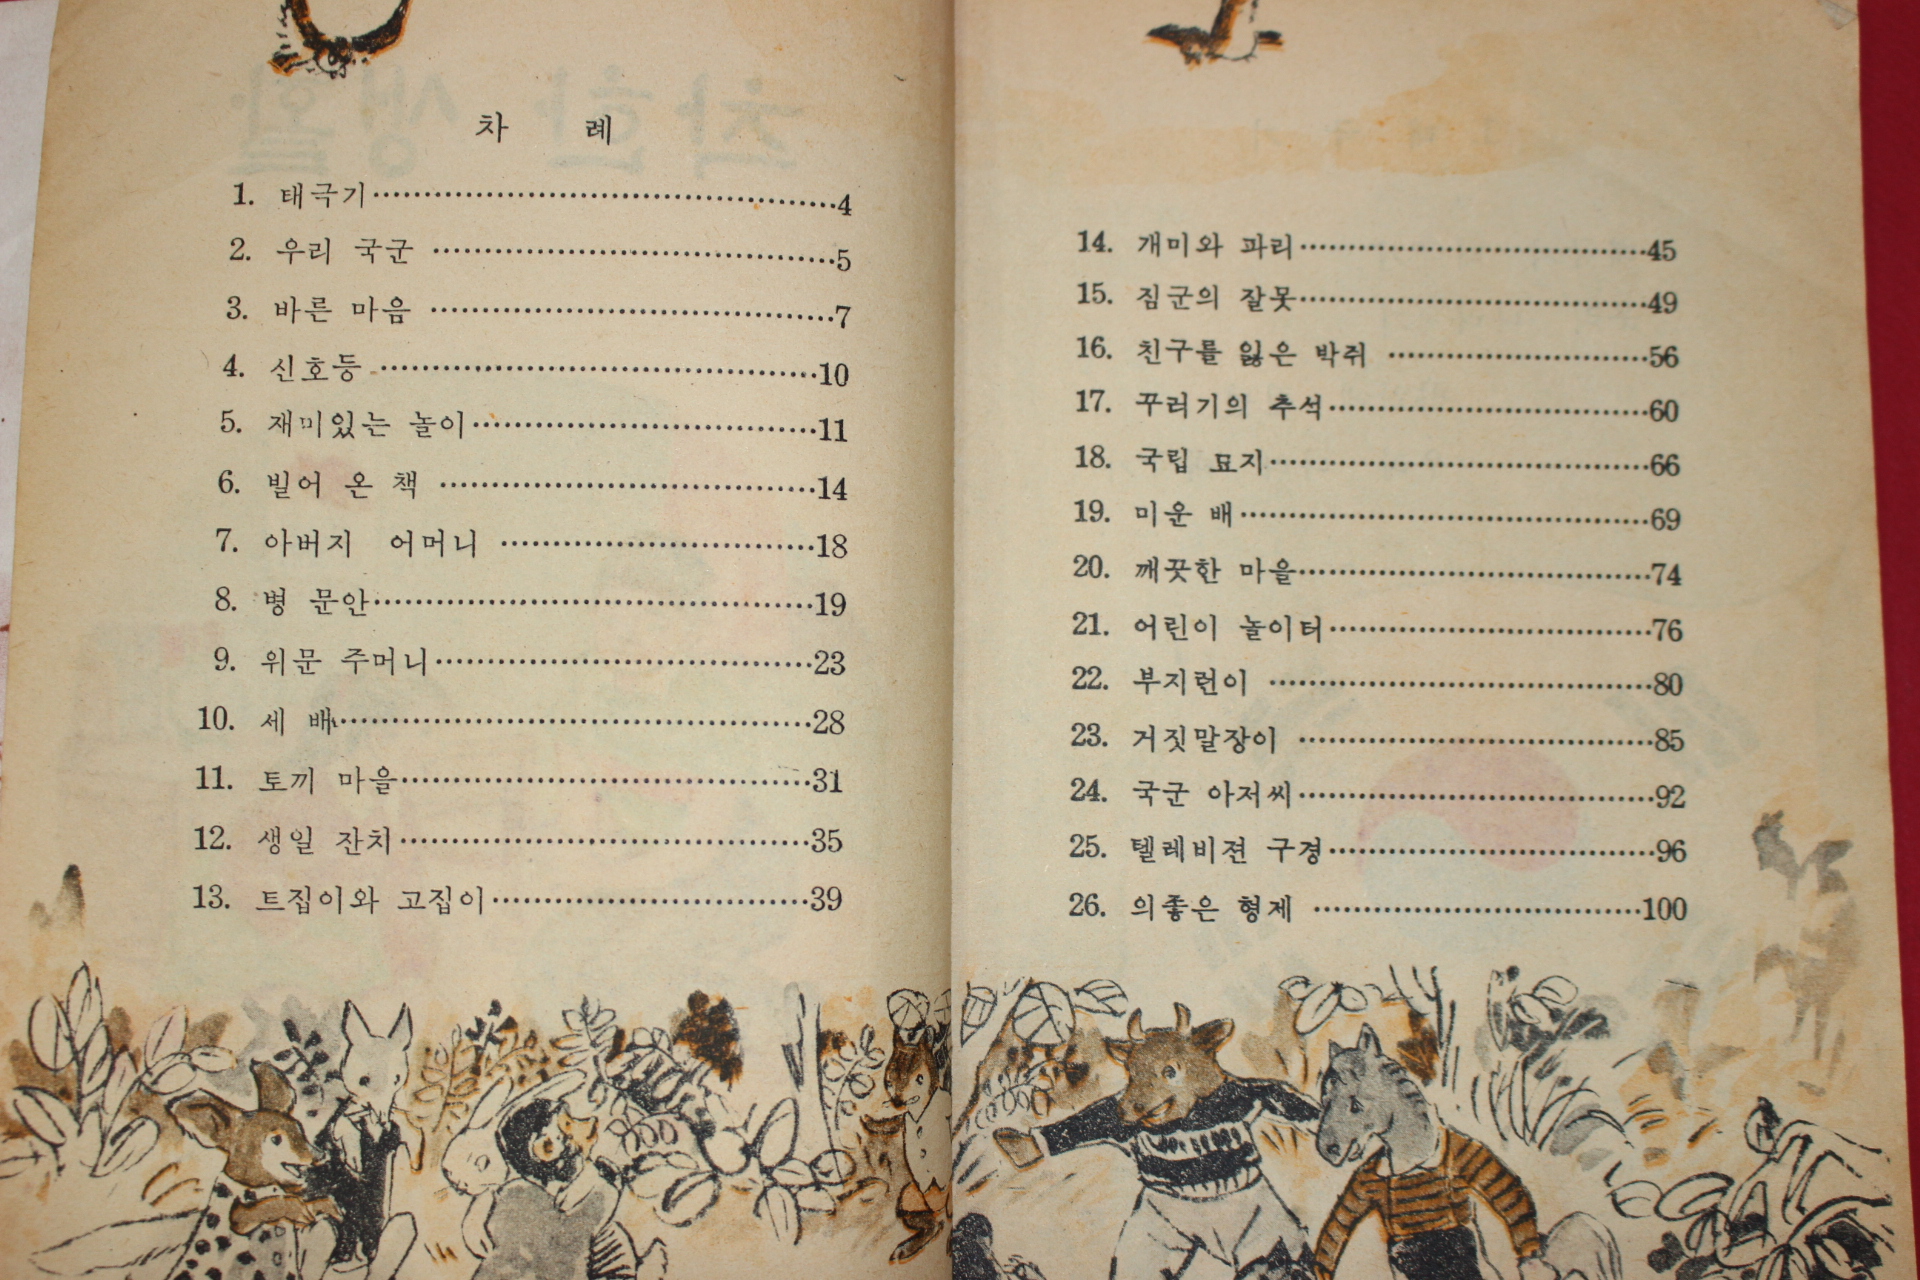 차 례
1. 태극기……………………………………4
2. 우리 국군 ………………………………5
3. 바른 마음 ………………………………7
4. 신호등……………………………………10
5. 재미있는 놀이……………………………11
6. 빌어 온 책 ………………………………14
7. 아버지 어머니 …………………………18
8. 병 문안……………………………………19
9. 위문 주머니………………………………23
10. 세 배………………………………………28
11. 토끼 마을…………………………………31
12. 생일 잔치…………………………………35
13. 트집이와 고집이…………………………39
14. 개미와 파리……………………………45
15. 짐군의 잘못……………………………49
16. 친구를 잃은 박쥐 ……………………56
17. 꾸러기의 추석…………………………60
18. 국립 묘지………………………………66
19. 미운 배…………………………………69
20. 깨끗한 마을……………………………74
21. 어린이 놀이터…………………………76
22. 부지런이 ………………………………80
23. 거짓말장이 ……………………………85
24. 국군 아저씨……………………………92
25. 텔레비젼 구경…………………………96
26. 의좋은 형제 …………………………100